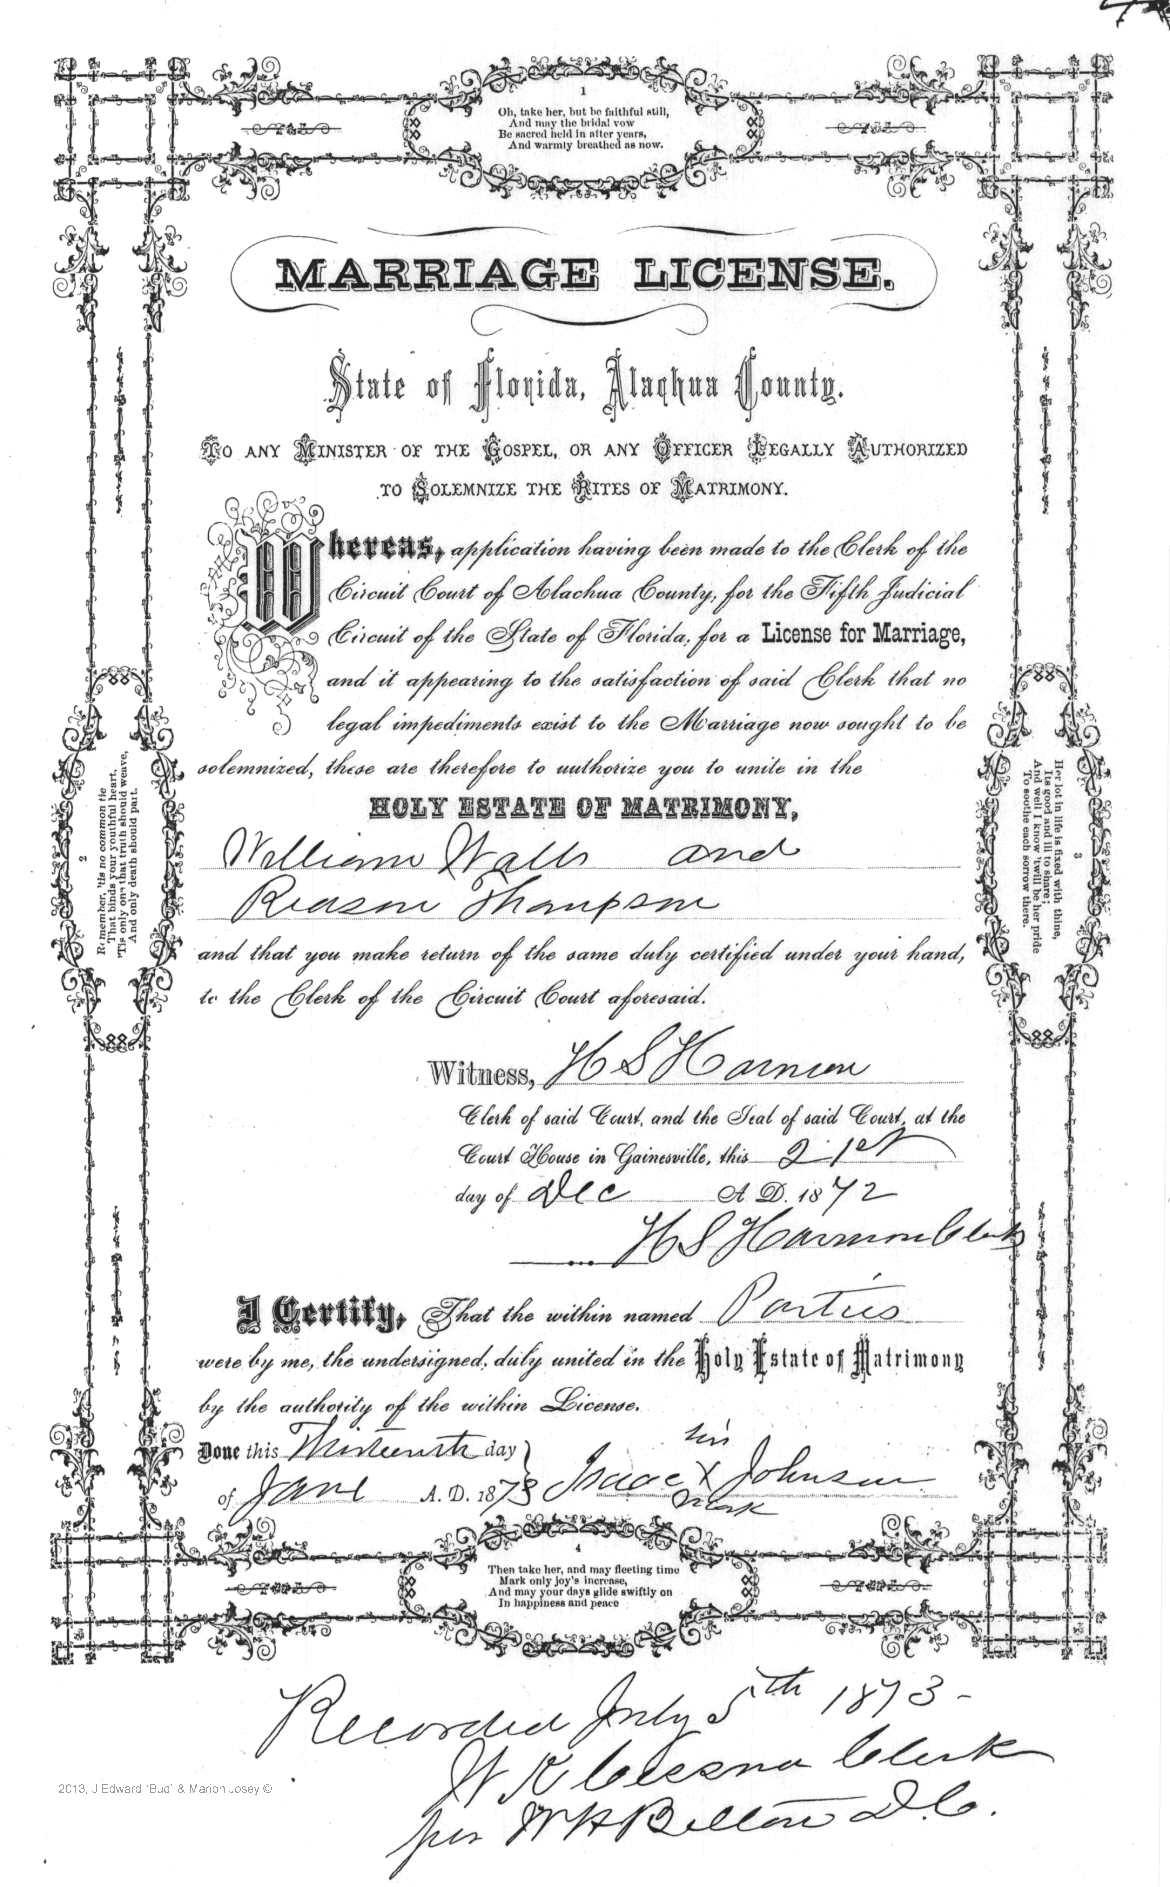 1
Oh, take her, but be faithful still,
And may the bridal vow
Be sacred held in after years,
And warmly breathed as now.
MARRIAGE LICENSE.
State of Florida, Alachua County.
TO ANY MINISTER OF THE GOSPEL, OR ANY OFFICER LEGALLY AUTHORIZED
TO SOLEMNIZE THE RITES OF MATRIMONY.
Whereas, application having been made to the Clerk of the
Circuit Court of Alachua County, for the Fifth Judicial
Circuit of the State of Florida, for a License for Marriage,
and it appearing to the satisfaction of said Clerk that no
legal impediments exist to the Marriage now sought to be
solemnized, these are therefore to authorize you to unite in the
HOLY ESTATE OF MATRIMONY,
William Walls and
Reason Thompson
and that you make return of the same duly certified under your hand,
to the Clerk of the Circuit Court aforesaid.
Witness, H S Harmon
Clerk of said Court, and the Seal of said Court, at the
Court House in Gainesville, this 21st
day of Dec A. D. 1872
H S Harmon Clerk
I Certify, That the within named Parties
were by me, the undersigned, duly united in the Holy Estate of Matrimony
by the authority of the within License.
Done this Thirteenth day
of June A. D. 1873 Isaac X Johnson
his
mark
2
Remember, 'tis no common tie
That binds your youthful heart,
'Tis only one that truth should weave,
And only death should part.
3
Her lot in life is fixed with thine,
Its good and ill to share;
And well I know 'twill be her pride
To soothe each sorrow there.
4
Then take her, and may fleeting time
Mark only joy's increase,
And may your days glide swiftly on
In happiness and peace
Recorded July 5th 1873-
W K Cessna Clerk
per W H Belton D.C.
2013, J Edward 'Bud' & Marion Josey ©